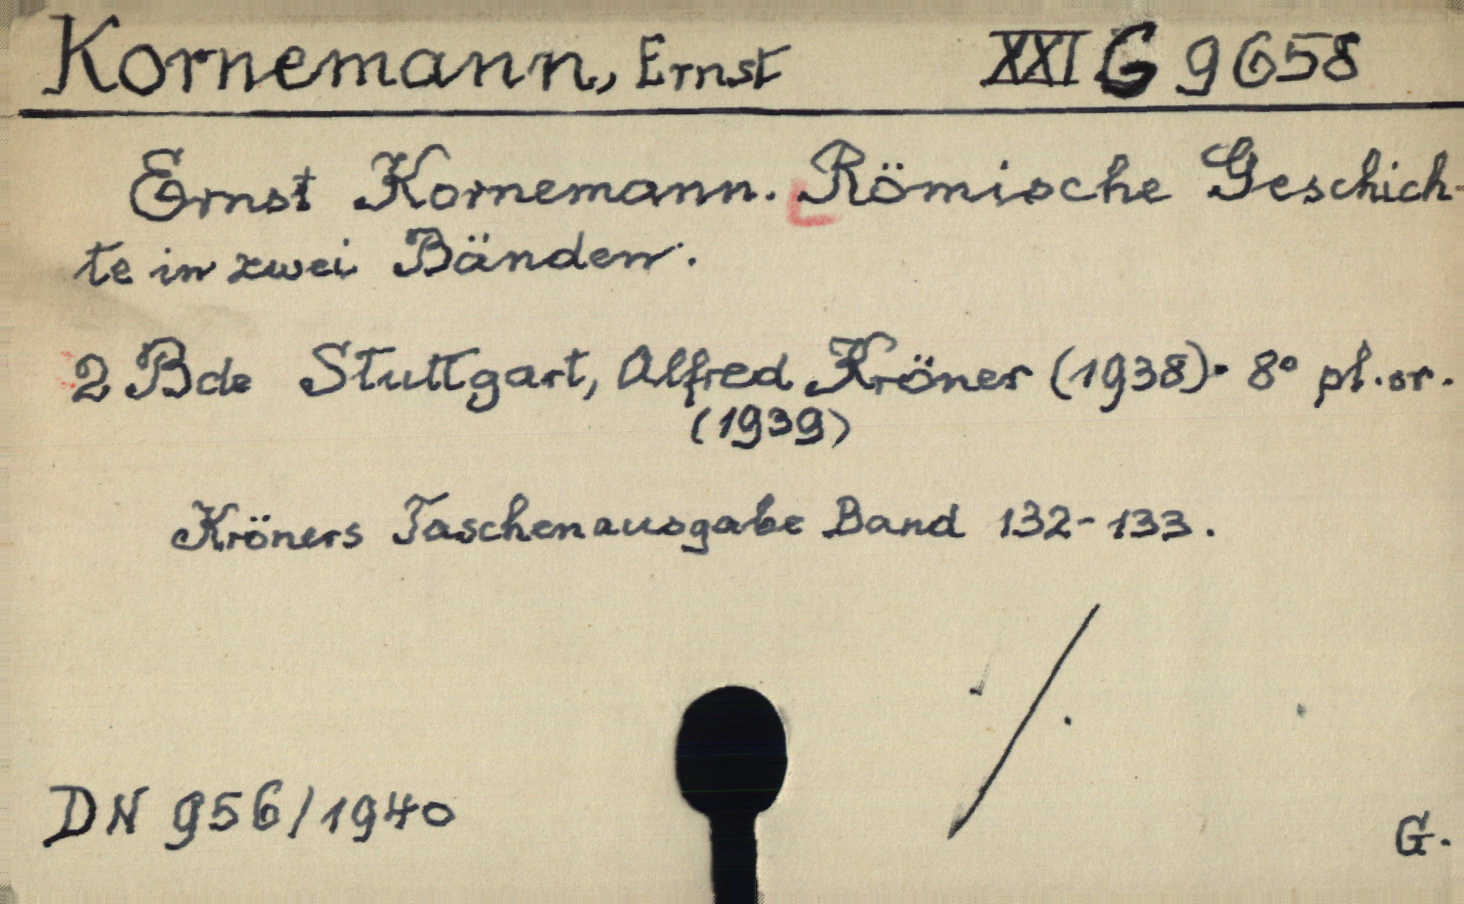 Kornemann, Ernst XXI G 9658
Ernst Kornemann. Römische Geschich-
te in zwei Bänden.
2 Bde Stuttgart, Alfred Kröner (1938). 8° pl. or.
(1939)
Kröners Taschenausgabe Band 132-133.
DN 956/1940
G.